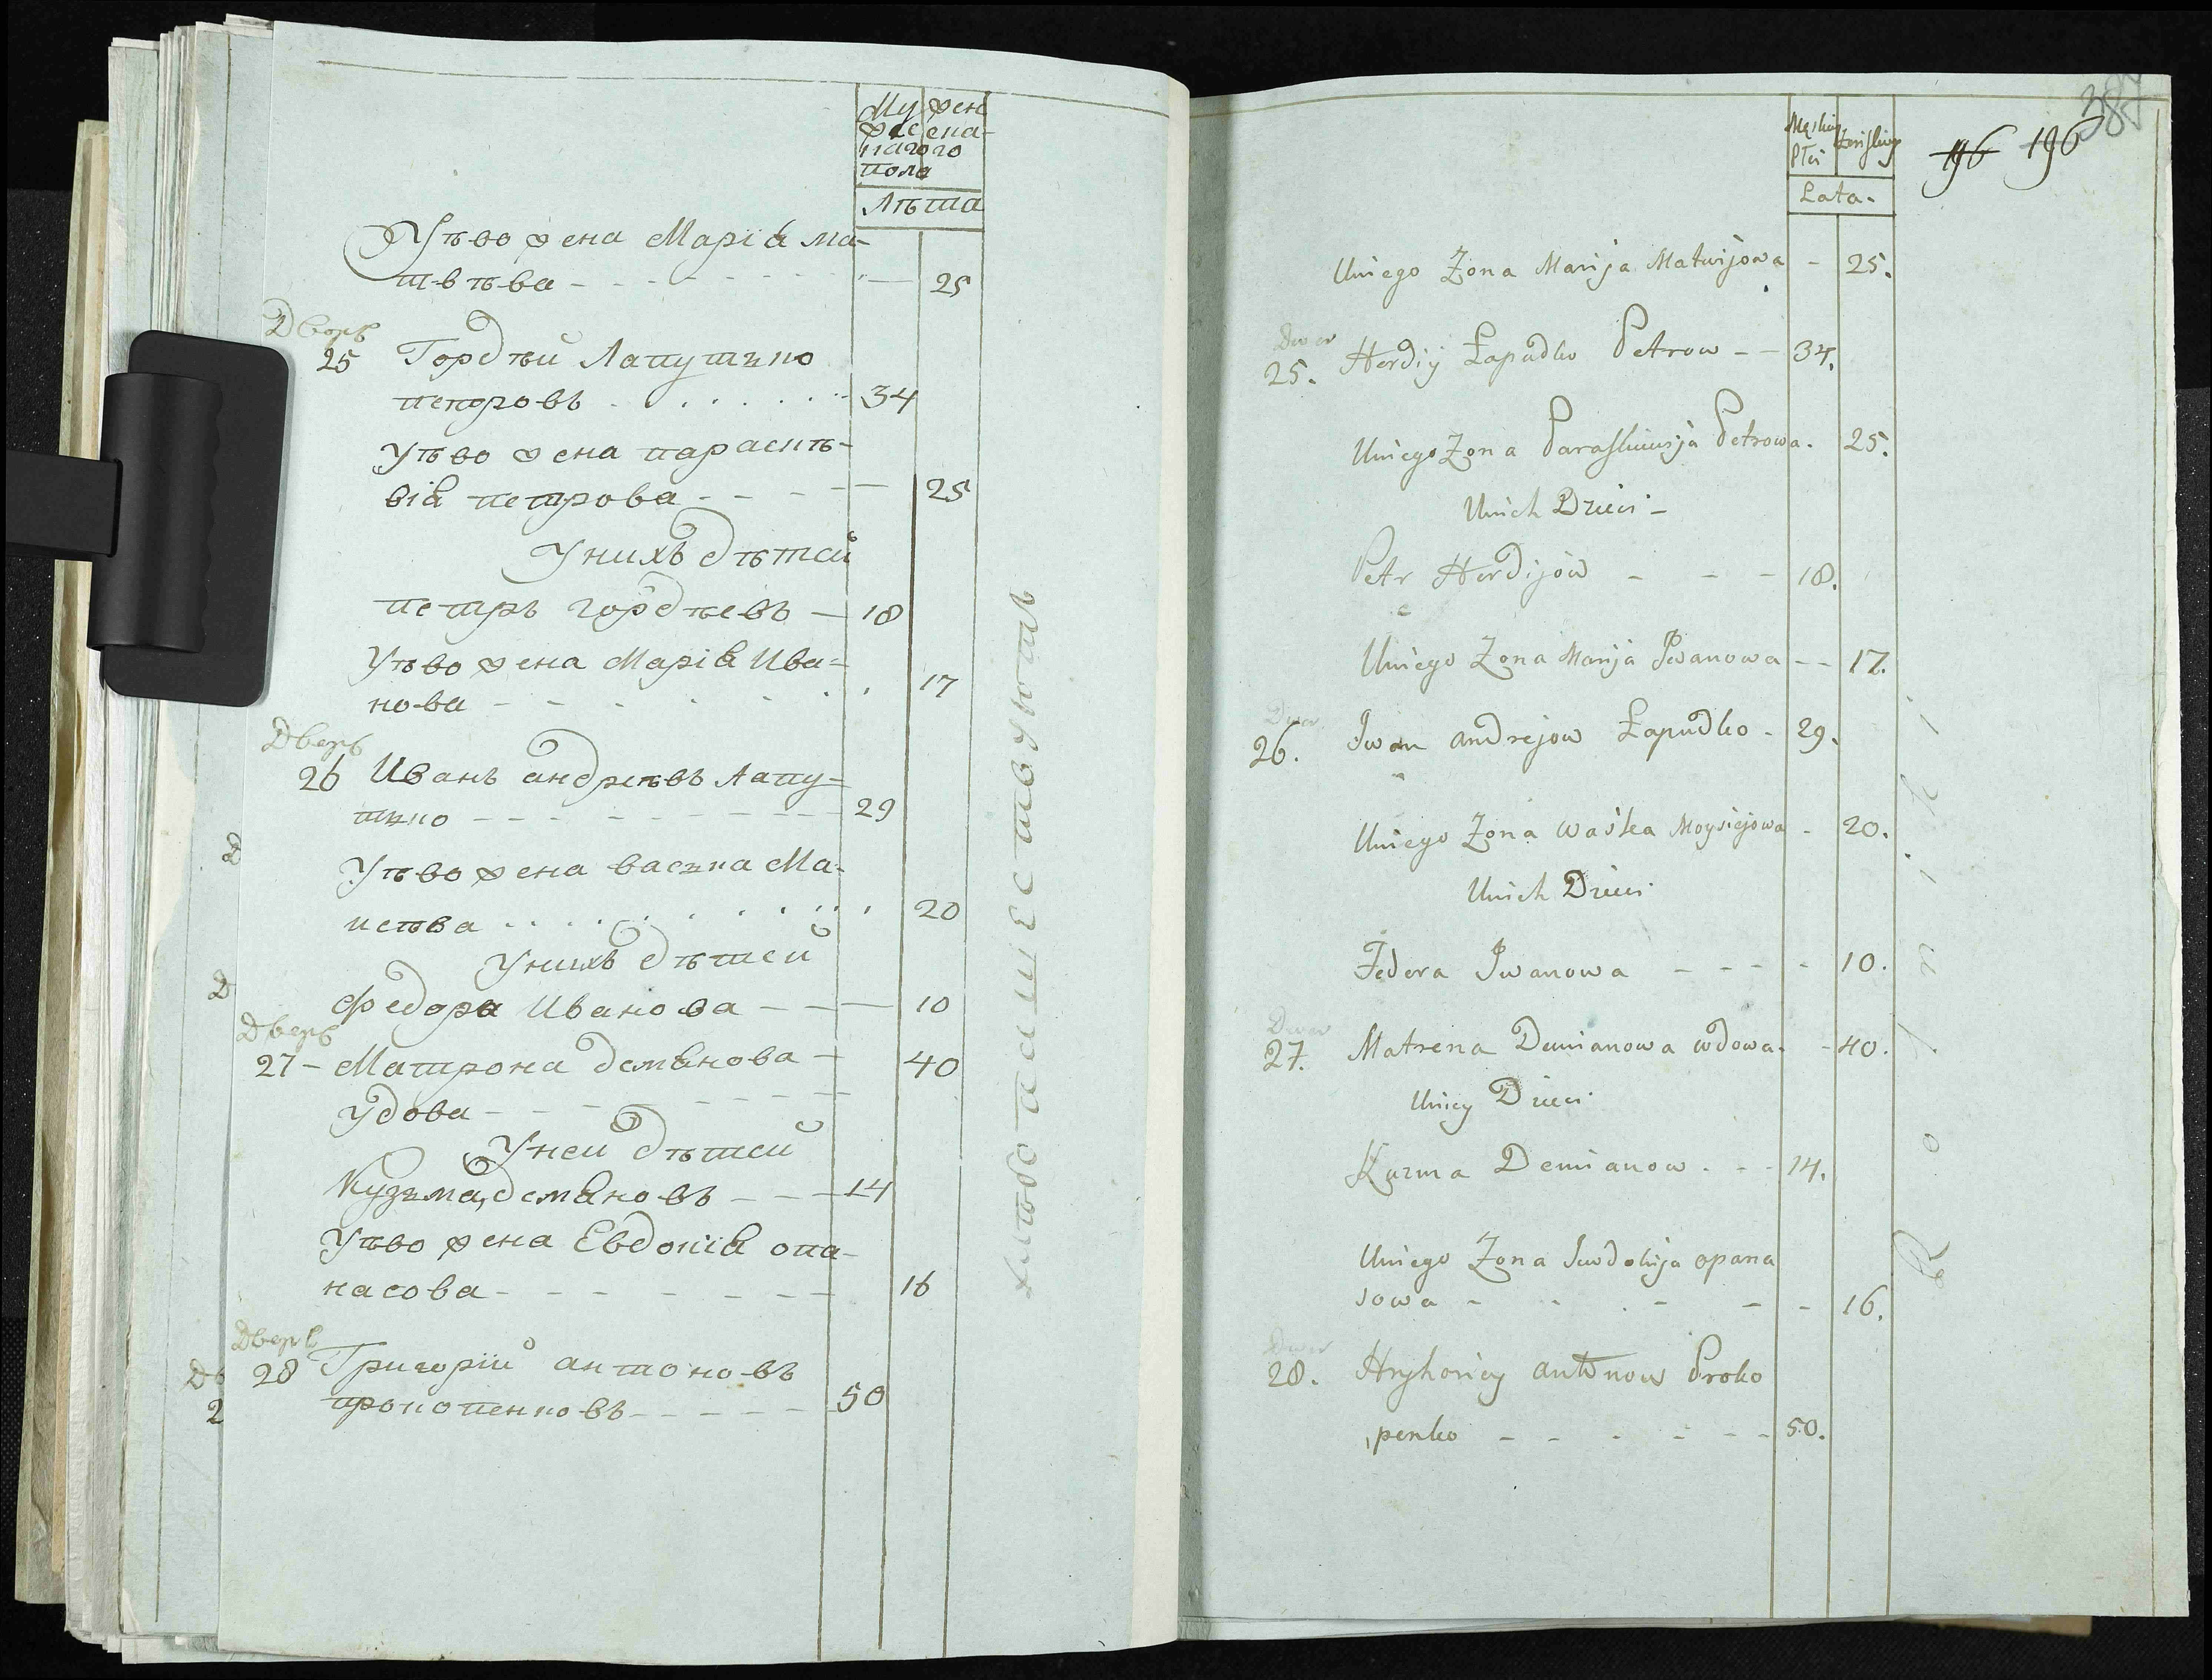 Му жес каго пола
жен ска го
Лѣта
У нѣво жена Марія ма-
твѣва - - - - - - — 25
Дворъ
25 Гордѣй Лапутько
петровъ . . . . . . 34
У нѣво жена параскѣ-
вія петрова - - - — 25
У нихъ дѣтей
петръ гордѣевъ — 18
У нѣво жена Марія Ива=
нова - - - - - 17
Дворъ
26 Иванъ андрѣевъ Лапу=
тько - - - - - - - 29
У нѣво жена васька Мо-
исѣва . . . . . . . 20
У нихъ дѣтей
Федора Иванова - - — 10
Дворъ
27 - Матрона демянова — 40
удова - - - - - -
У ней дѣтей
Кузьма, демяновъ - - - 14
У нѣво жена Евдокія опа-
насова - - - - - - 16
Дворъ
28 Григорій антоновъ
прокопенковъ - - - - - 50
хлѣбопашествуютъ
387
196 196
Męskiey Płci
Żeńskiey
Lata.
Uniego Żona Marija Matwijowa - 25.
Dwor
25. Hordiy Łapudko Petrow - - 34.
Uniego Żona Paraskiewija Petrowa. 25.
Unich Dzieci -
Petr Hordijow - - - 18.
Uniego Żona Marija Iwanowa - - 17.
Dwor
26. Iwan andrejow Łapudko - 29.
Uniego Żona waśka Moysiejowa - 20.
Unich Dzieci
Fedora Iwanowa - - - - 10.
Dwor
27. Matrena Demianowa wdowa. - 40.
Uniey Dzieci
Kuzma Demianow . - - 14.
Uniego Żona Iewdokija opana
sowa - - . - - - 16.
Dwor
28. Hryhoriey antonow Proko
penko - - - - - - 50.
Rolniki